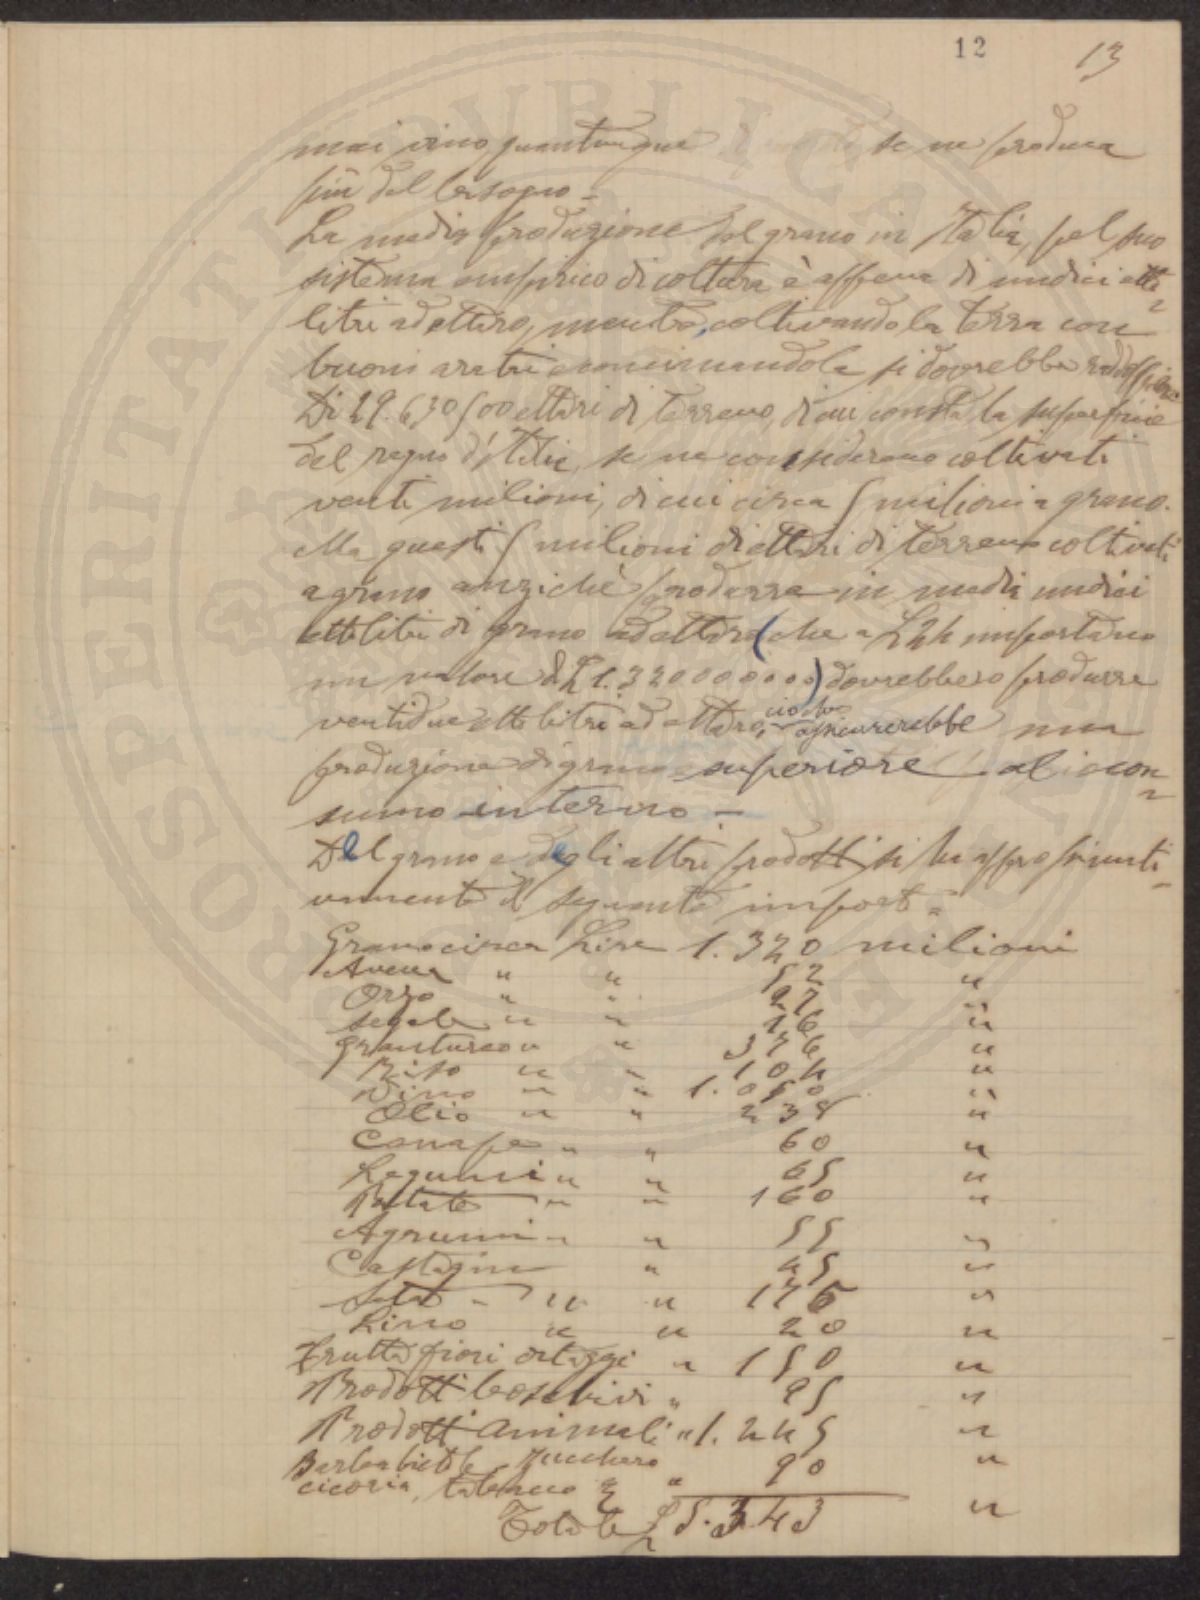 12 13
mai vino quantunque se ne produca
più del bisogno =
La media produzione del grano in Italia, pel suo
sistema empirico di coltura è appena di undici etto=
litri ad ettaro, mentre, coltivando la terra con
buoni aratri e concimandola si dovrebbe raddoppiare
Di 29.630500 ettari di terreno, di cui consta la superficie
del regno d'Italia, se ne considerano coltivati
venti milioni, di cui circa 5 milioni a grano.
Ma questi 5 milioni di ettari di terreno coltivati
a grano anzichè produrre in media undici
ettolitri di grano ad ettaro (che a L 24 importano
un valore di L 1.320000000) dovrebbero produrre
ventidue ettolitri ad ettaro, ciò che assicurerebbe una
produzione di grano superiore al con=
sumo interno -
Del grano e degli altri prodotti si ha approssimati=
vamente il seguente import. =
Grano circa Lire 1.320 milioni
Avena " " 52 "
Orzo " " 27 "
Segale " " 16 "
Granturco " " 376 "
Riso " " 104 "
Vino " " 1.050 "
Olio " " 238 "
Canape " " 60 "
Legumi " " 65 "
Patate " " 160 "
Agrumi " " 55 "
Castagne " 45 "
Seta - " " 175 "
Lino " " 20 "
Frutta fiori ortaggi " 150 "
Prodotti boschivi " 95 "
Prodotti animali " 1.245 "
Barbabietole Zucchero
cicoria, tabacco " 90 "
Totale L 5.343 "
PROSPERITATI PVBLICAE